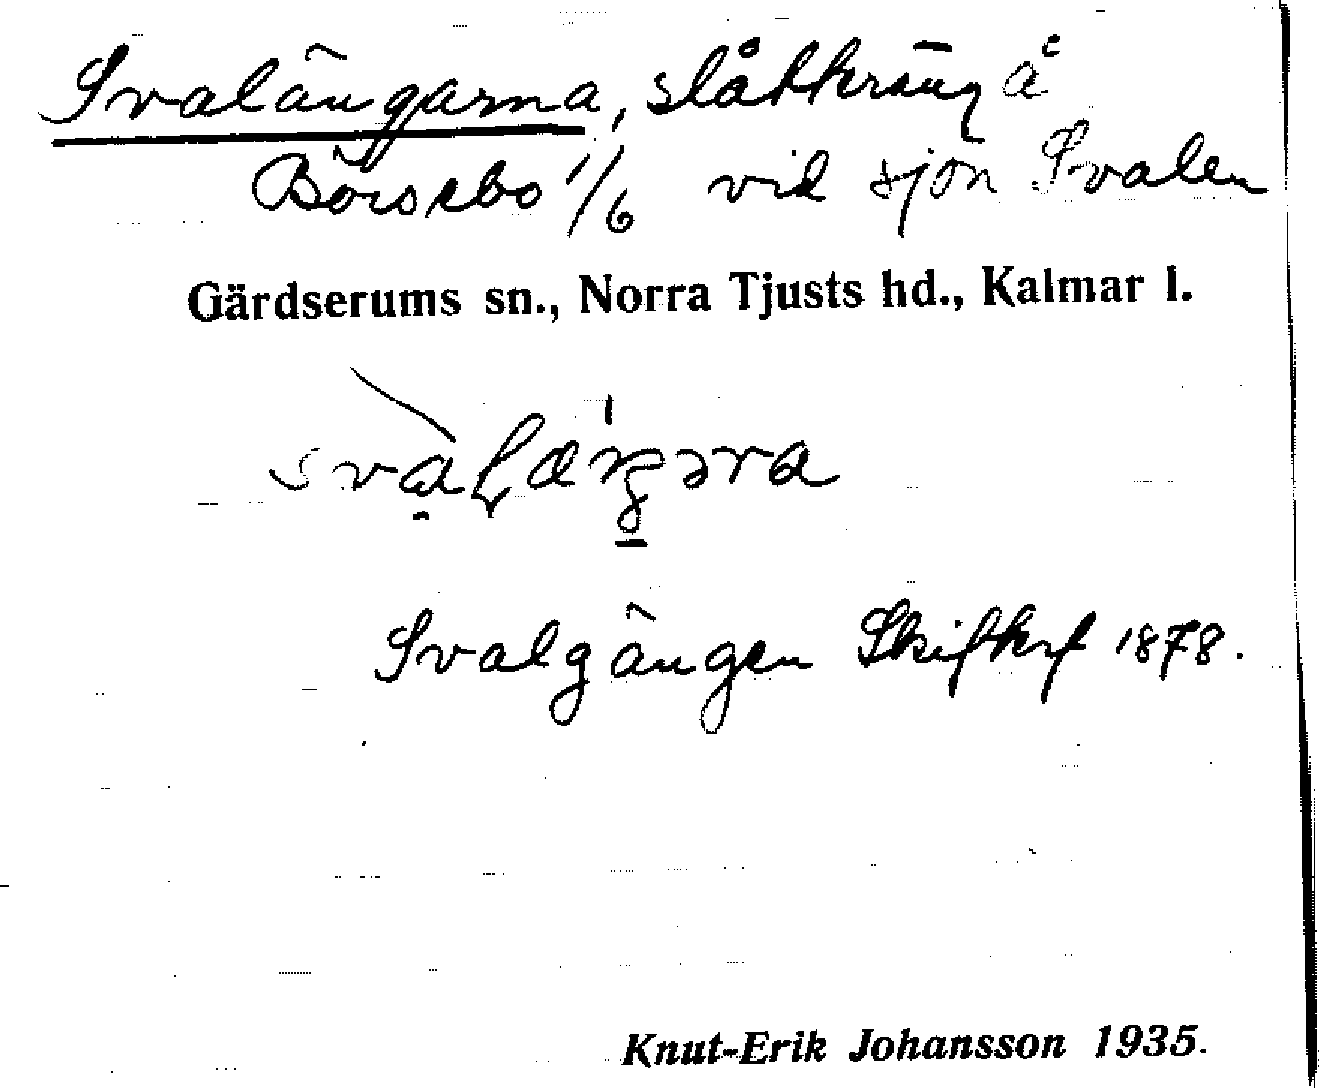 Svalängarna, slåtteräng å
Börsebo 1/6 vid sjön Svalen
Gärdserums sn., Norra Tjusts hd., Kalmar l.
Svalgängen Skifteskf 1878.
Knut-Erik Johansson 1935.